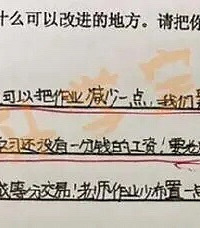 什么可以改进的地方。请把你
可以把作业减少一点,我们
习还没有一分钱的工资!要
或等分交易!老师作业少布置一